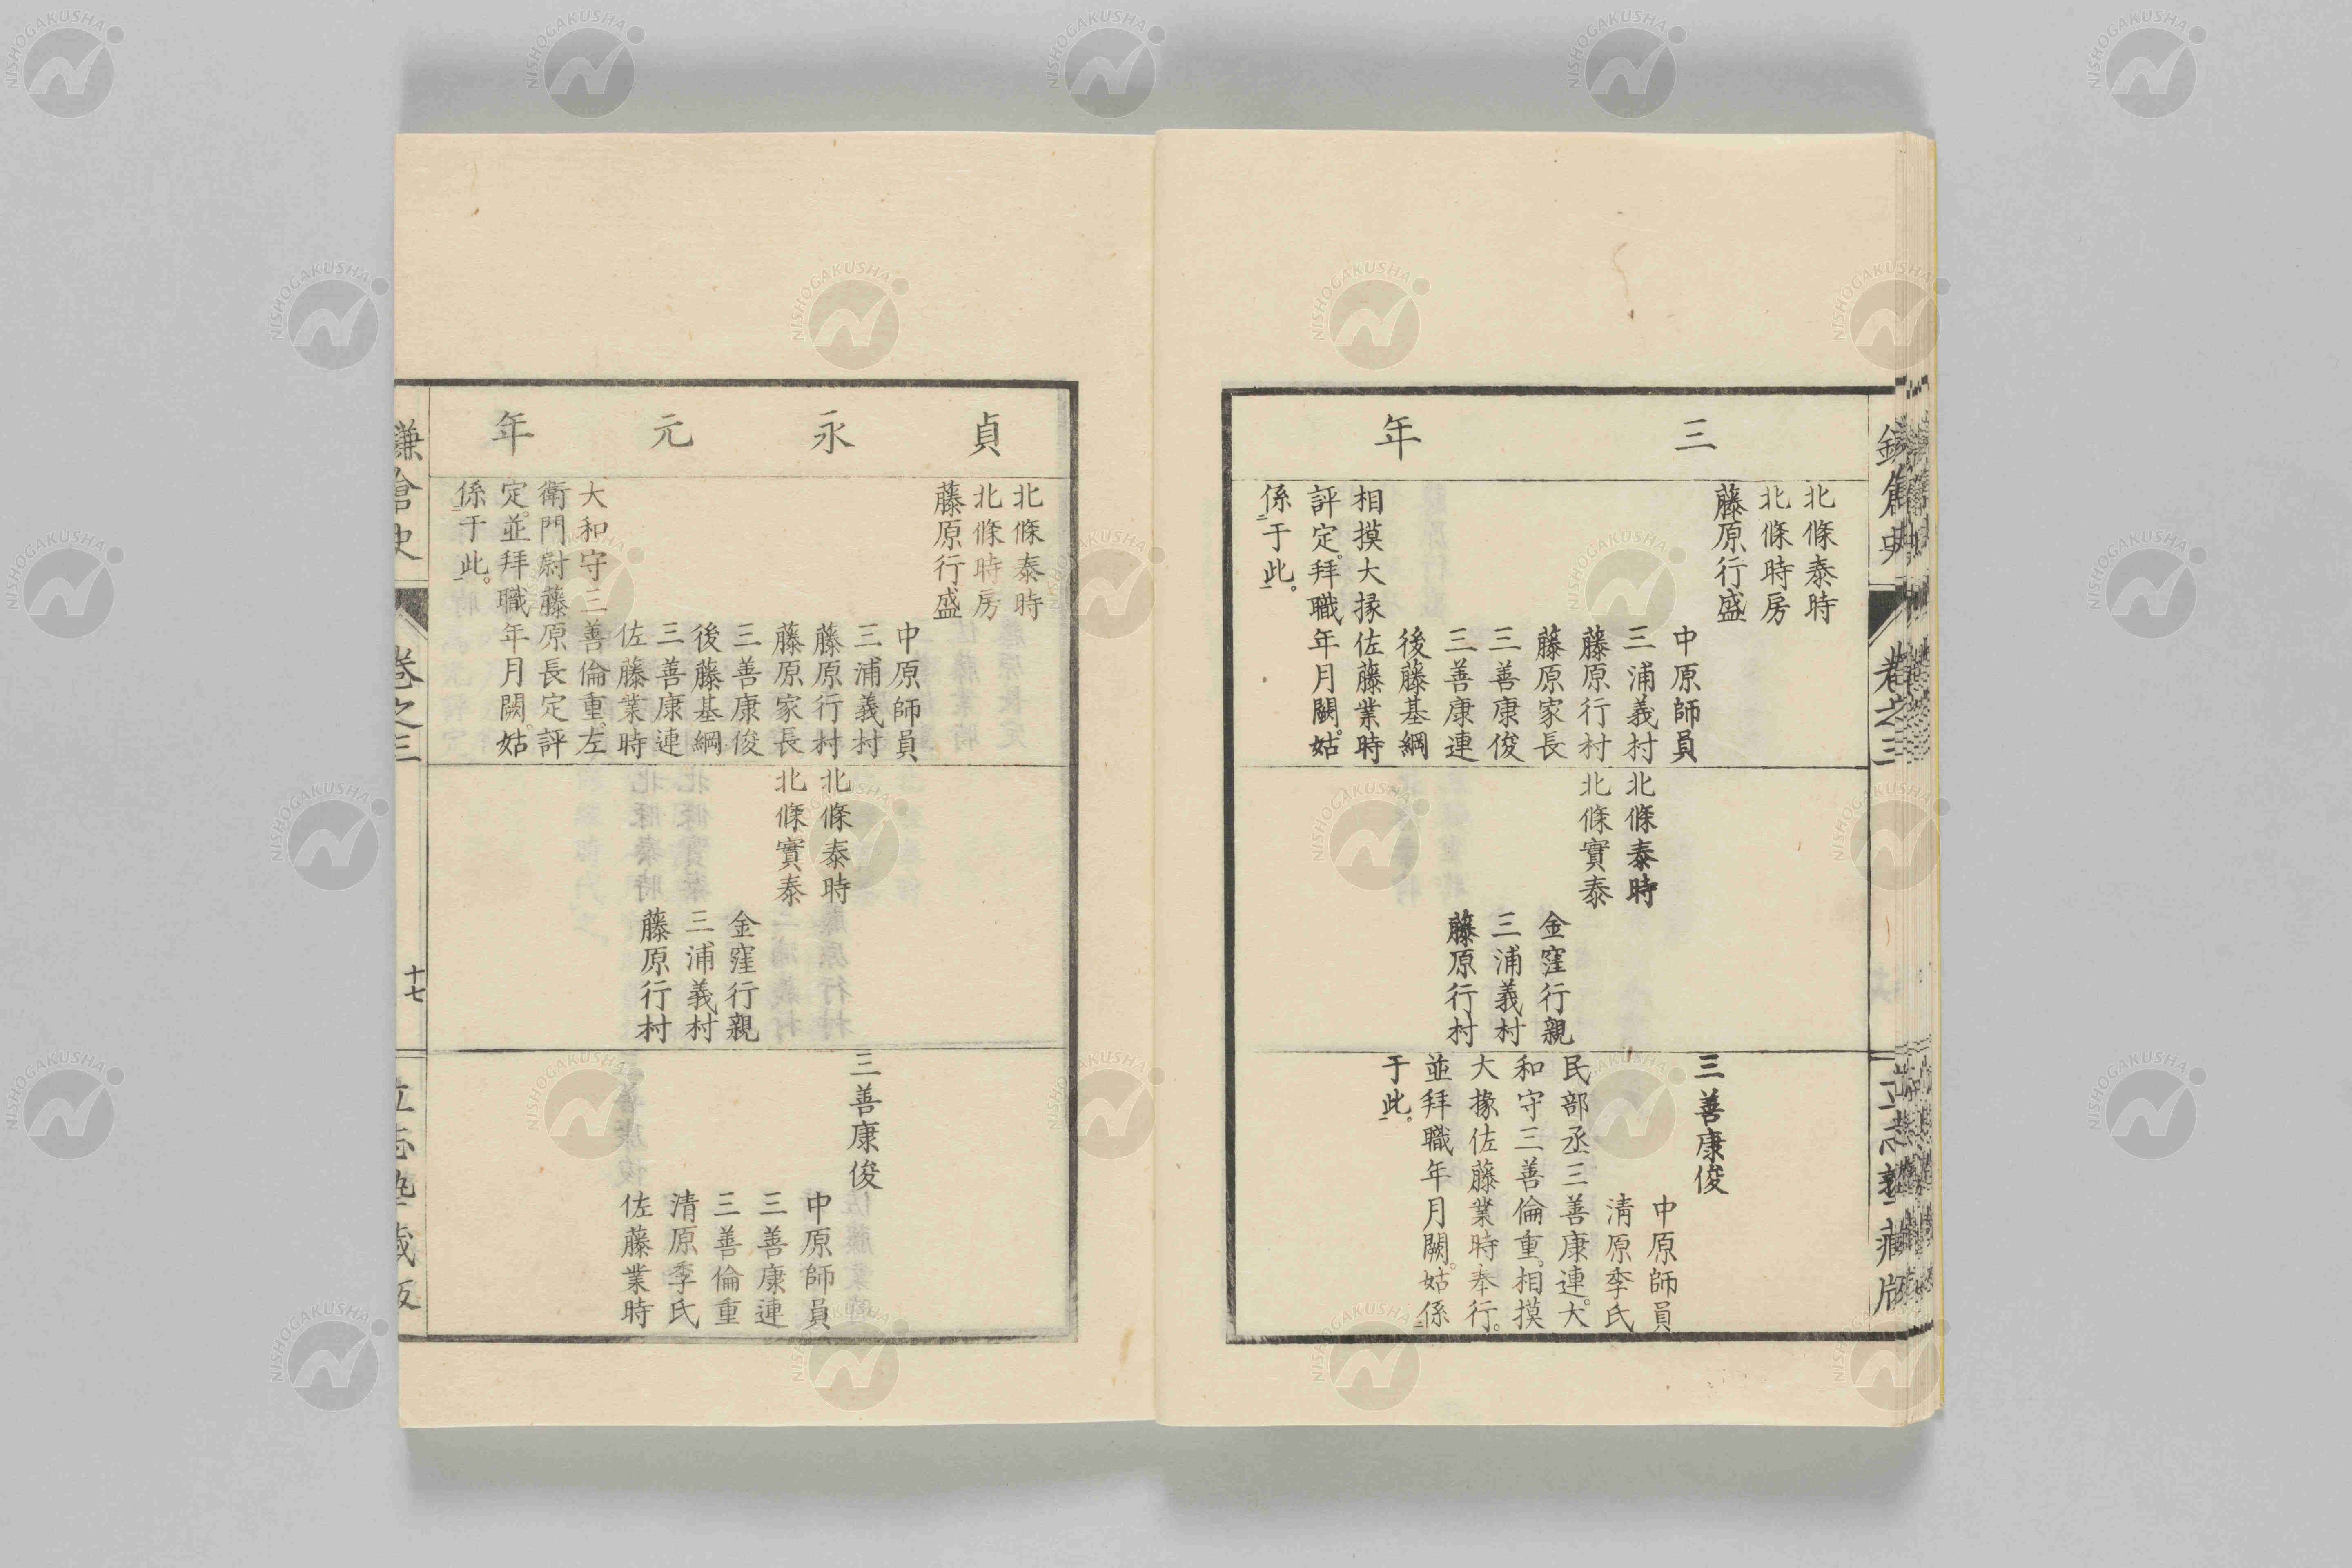 三年
北條泰時
北條時房
藤原行盛
中原師員
三浦義村
藤原行村
藤原家長
三善康俊
三善康連
後藤基綱
相摸大掾佐藤業時
評定。拜職年月闕。姑
係于此。
北條泰時
北條實泰
金窪行親
三浦義村
藤原行村
三善康俊
中原師員
清原季氏
民部丞三善康連。大
和守三善倫重。相摸
大掾佐藤業時奉行。
並拜職年月闕。姑係
于此。
貞永元年
北條泰時
北條時房
藤原行盛
中原師員
三浦義村
藤原行村
藤原家長
三善康俊
後藤基綱
三善康連
佐藤業時
大和守三善倫重。左
衛門尉藤原長定評
定。並拜職年月闕。姑
係于此。
北條泰時
北條實泰
金窪行親
三浦義村
藤原行村
三善康俊
中原師員
三善康連
三善倫重
清原季氏
佐藤業時
鎌倉史
卷之三
十七
NISHOGAKUSHA